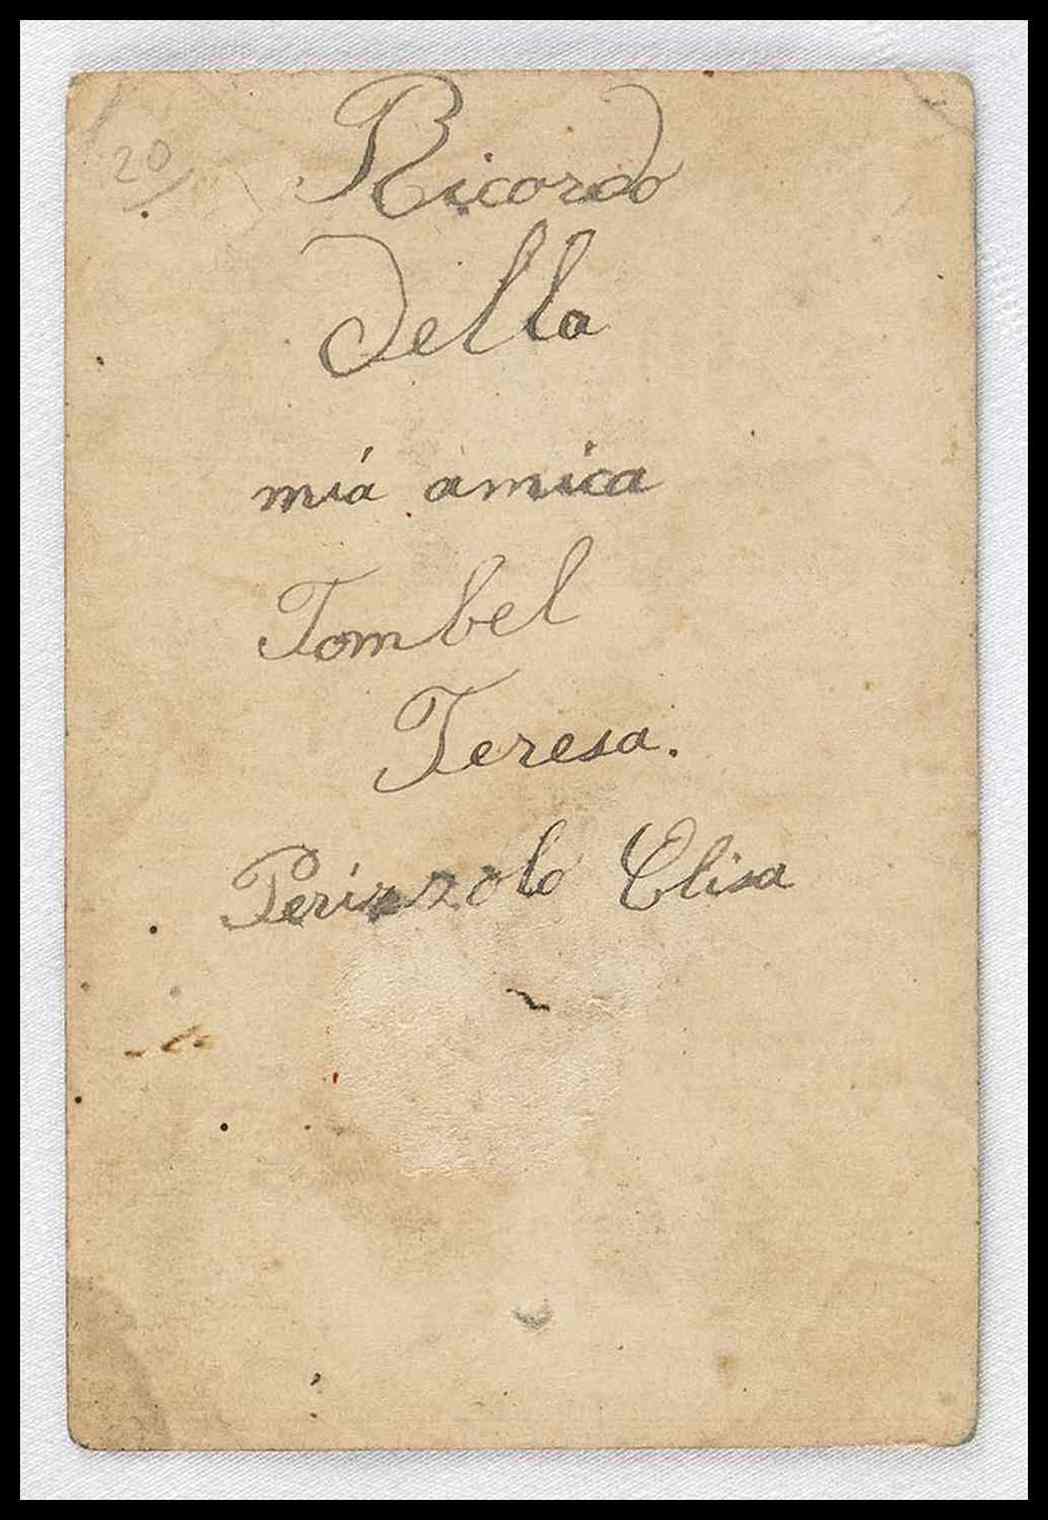 20/
Ricordo
della
mia amica
Tombel
Teresa.
Perizzolo Elisa